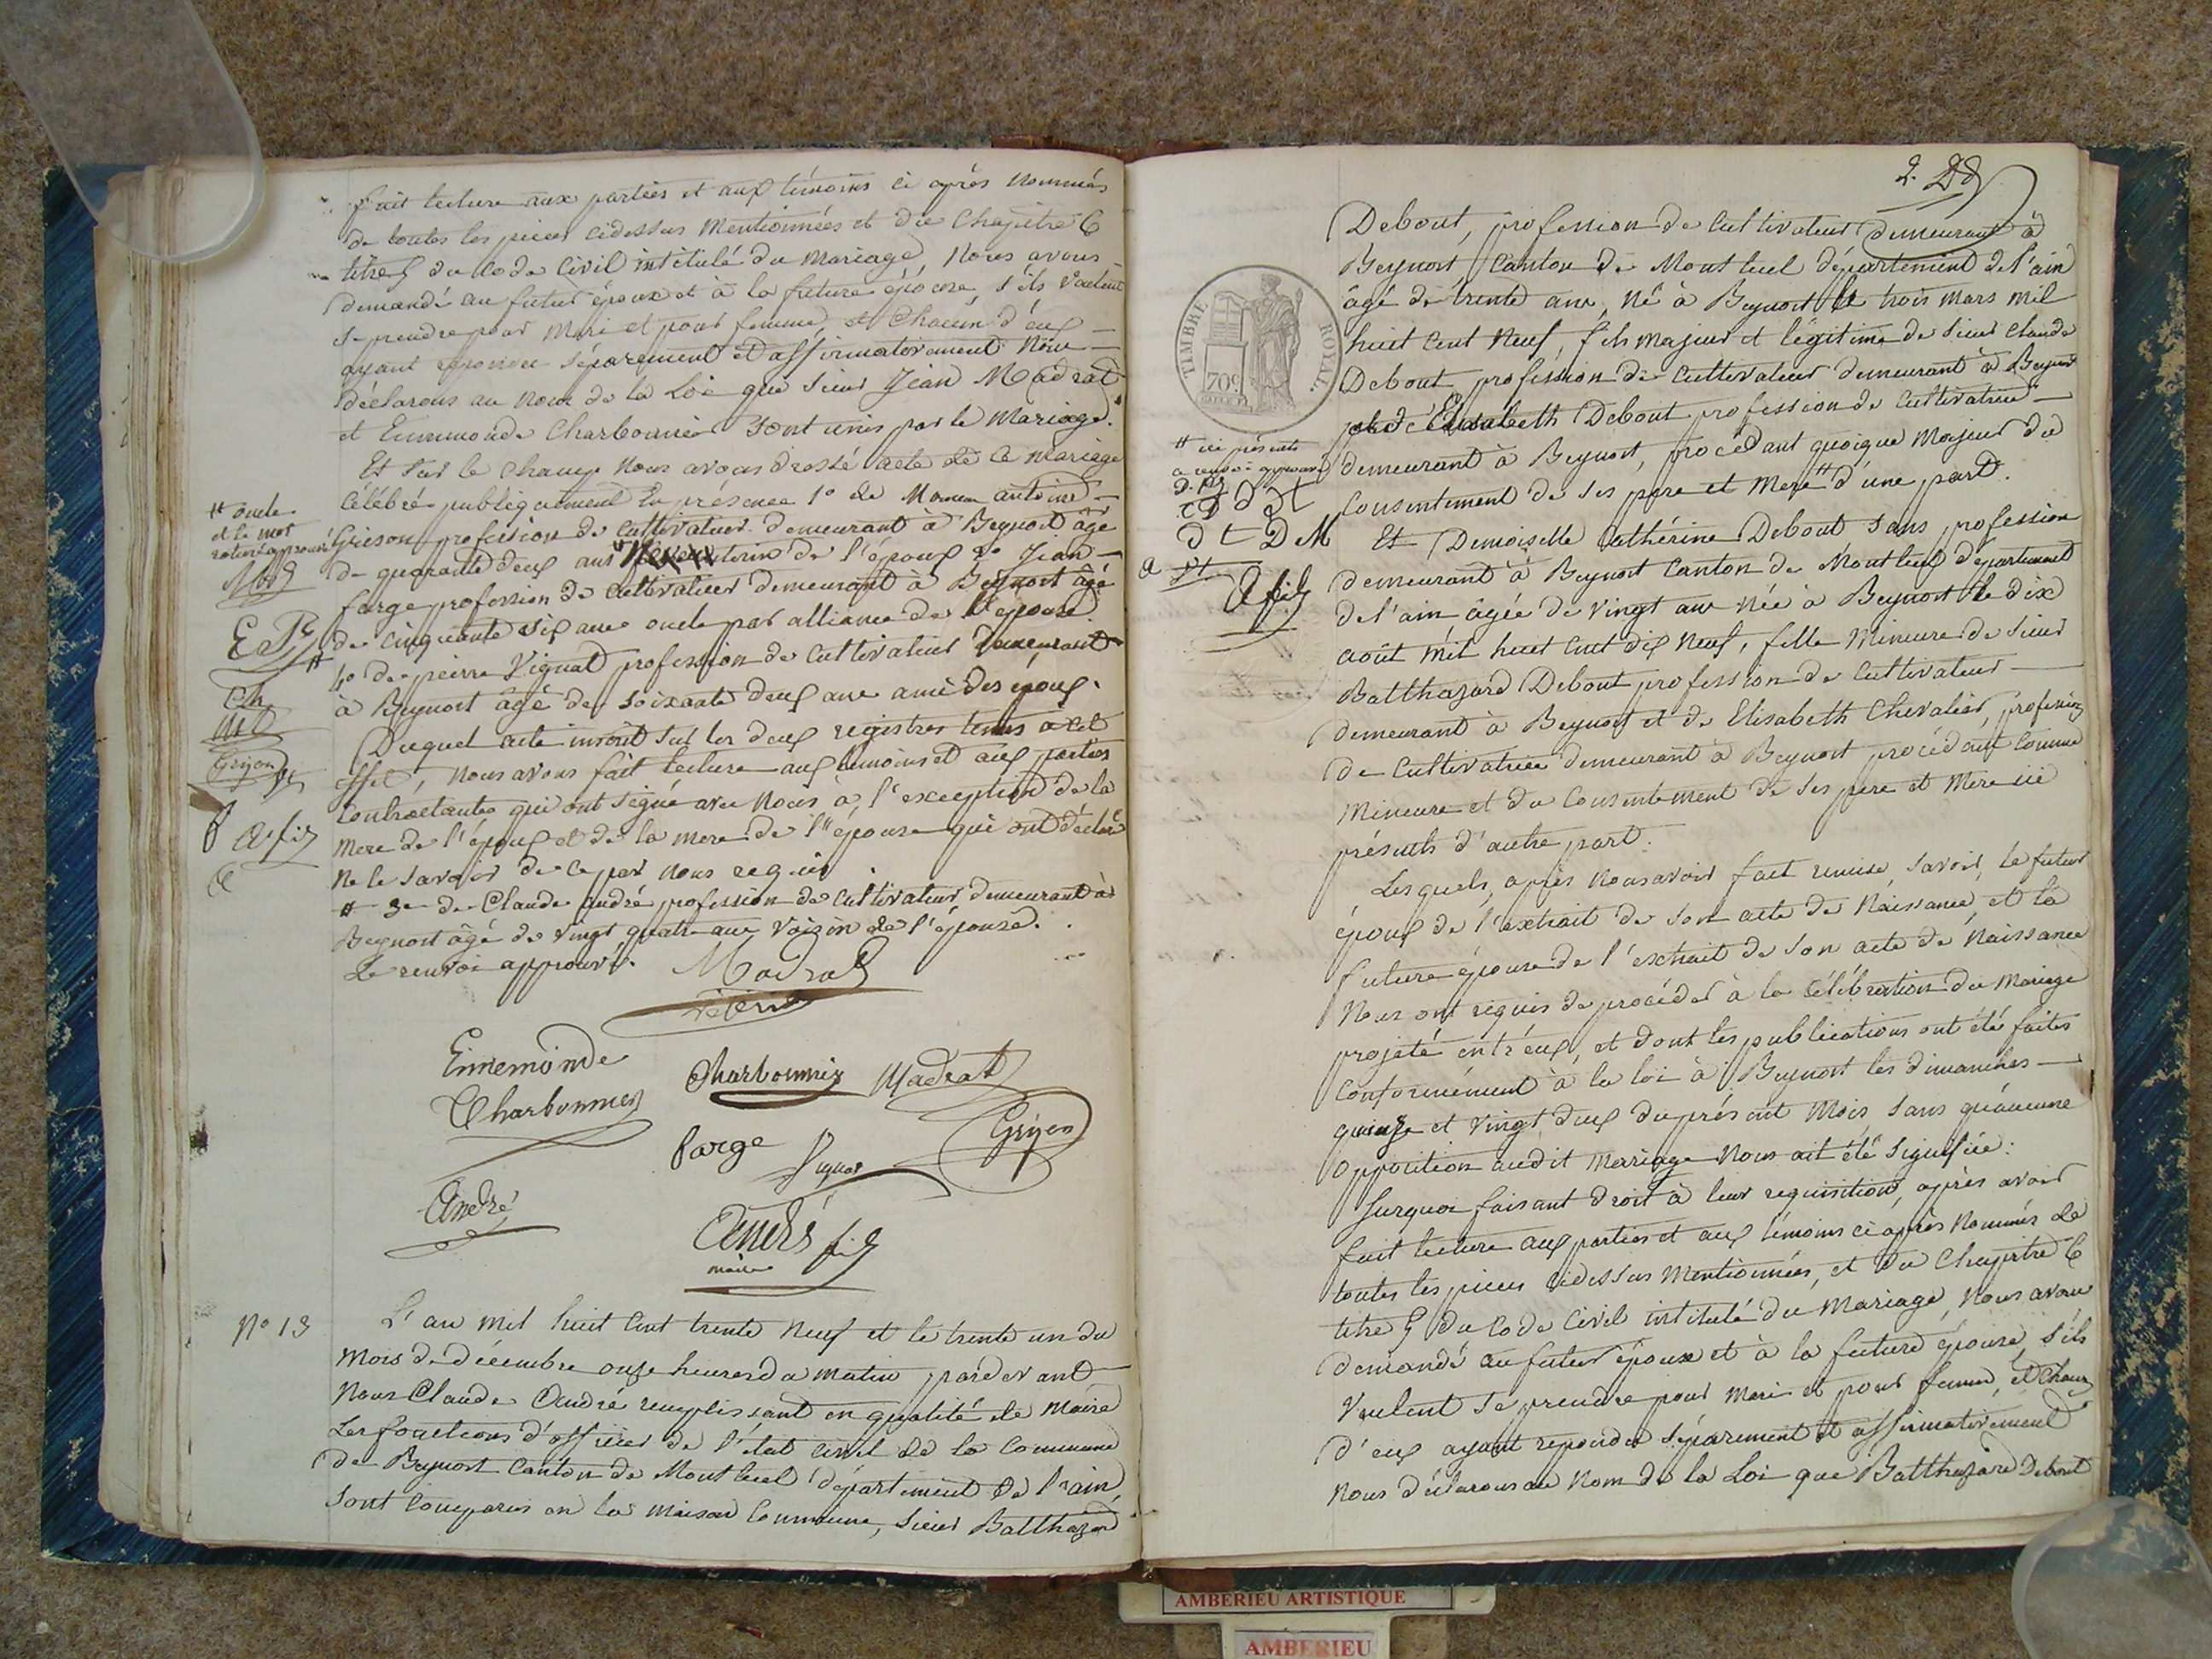 fait lecture aux parties et aux témoins ci après nommés
de toutes les pieces cidessus Mentionnées et du Chapitre 6
titre 5 du Code Civil intitulé du Mariage, Nous avons
demandé au futur époux et à la future épouse, s'ils veulent
se prendre pour Mari et pour femme, et Chacun d'eux
ayant repondu séparement et affirmativement Nous
déclarons au nom de la Loi que Sieur Jean Madrat
et Ennemonde Charbonnier sont unis par le Mariage.
Et sur le champ Nous avons dressé acte de ce mariage
célébré publiquement En présence 1o de antoine
Grison profession de Cultivateur demeurant à Beynost âgé
de quarante deux ans de l'époux 2o Jean
farge profession de Cultivateur demeurant à Beynost âgé
de cinquante six ans oncle par alliance de l'épouse
4o de peirre Vignat profession de Cultivateur Demeurant
à Beynost âgé de soixante deux ans ami des époux.
Duquel acte inscrit sur les deux registres tenus à cet
effet, nous avons fait lecture aux témoins et aux parties
Contractantes qui ont signé avec Nous à l'exception de la
Mere de l'époux et de la mere de l'épouse qui ont déclaré
Ne le savoir de ce par nous requis
# 3e de Claude andré profession de Cultivateur demeurant à
Beynost âgé de vingt quatre ans Voisin de l'épouse.
Le renvoi approuvé.
# oncle
et le mot
approuvé
Ch
Grison
A fils
Madrat
Ennemonde
Charbonnier
Charbonnier Madrat
farge
Vignat
Grison
André
André fils
maire
No 13
L'an mil huit Cent trente Neuf et le trente un du
Mois de décembre onze heures du matin, pardevant
Nous Claude André remplissant en qualité de Maire
Les fonctions d'officier de l'état civil de la Commune
de Beynost Canton de Montluel département de l'ain,
sont Comparus en la Maison Commune, Sieur Balthazard
TIMBRE ROYAL
70c
Debout, profession de Cultivateur demeurant à
Beynost Canton de Montluel département de l'ain
âgé de trente ans, Né à Beynost le trois Mars mil
huit Cent Neuf, fils Majeur et légitime de Sieur Claude
Debout profession de Cultivateur demeurant à Beynost
et de Elisabeth Debout profession de Cultivatrice
demeurant à Beynost, procédant quoique Majeur du
Consentement de ses pere et Mere # d'une part.
# ici présents
approuvé
D M
A fils
Et Demoiselle Cathérine Debout Sans profession
demeurant à Beynost Canton de Montluel département
de l'ain âgée de Vingt ans Née à Beynost le dix
août mil huit Cent dix Neuf, fille Mineure de Sieur
Balthazard Debout profession de Cultivateur
demeurant à Beynost et de Elisabeth Chevalier, profession
de Cultivatrice demeurant à Beynost procédant Comme
Mineure et du Consentement de ses pere et Mere ici
présents d'autre part.
Lesquels, après Nous avoir fait remise, savoir, le futur
époux de l'extrait de son acte de Naissance, et la
future épouse de l'extrait de son acte de Naissance
Nous ont requis de procéder à la Célébration du Mariage
projeté entr'eux, et dont les publications ont été faites
Conformément à la loi à Beynost les dimanches
quinze et vingt deux du présent Mois, Sans qu'aucune
Opposition audit Mariage Nous ait été signifiée:
Surquoi faisant droit à leur requisition, après avoir
fait lecture aux parties et aux témoins ci après Nommés de
toutes les pieces cidessus Mentionnées, et du Chapitre 6
titre 5 du Code Civil intitulé du Mariage, Nous avons
demandé au futur époux et à la future épouse, s'ils
veulent se prendre pour Mari et pour femme, et Chacun
d'eux ayant repondu séparement et affirmativement
Nous déclarons au Nom de la Loi que Balthazard Debout
AMBERIEU ARTISTIQUE
AMBERIEU